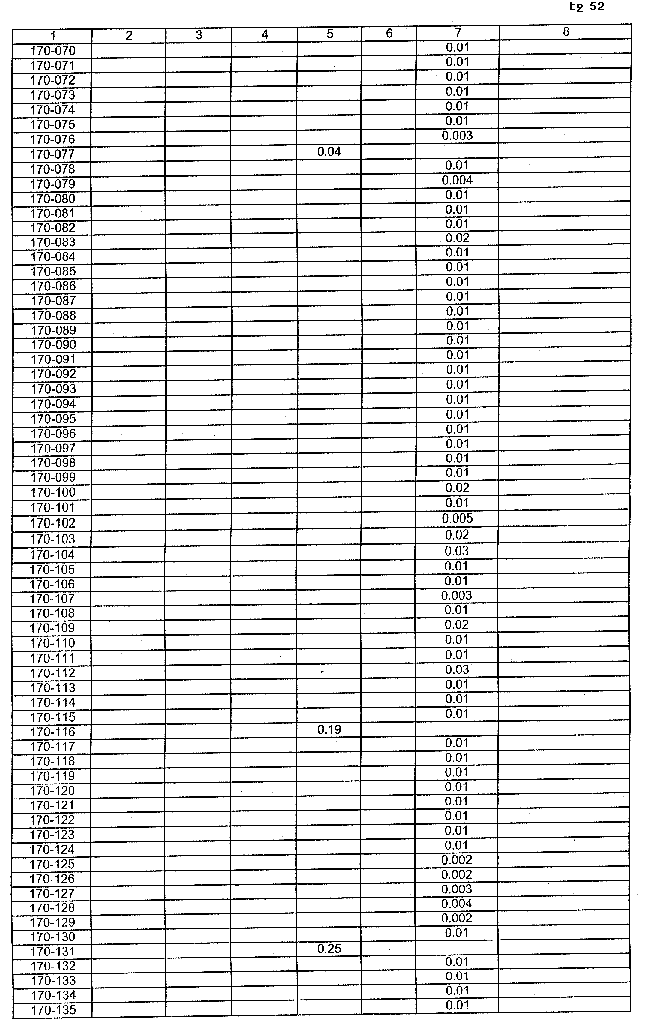 tg 52
1 2 3 4 5 6 7 8
170-070 0.01
170-071 0.01
170-072 0.01
170-073 0.01
170-074 0.01
170-075 0.01
170-076 0.003
170-077 0.04
170-078 0.01
170-079 0.004
170-080 0.01
170-081 0.01
170-082 0.01
170-083 0.02
170-084 0.01
170-085 0.01
170-086 0.01
170-087 0.01
170-088 0.01
170-089 0.01
170-090 0.01
170-091 0.01
170-092 0.01
170-093 0.01
170-094 0.01
170-095 0.01
170-096 0.01
170-097 0.01
170-098 0.01
170-099 0.01
170-100 0.02
170-101 0.01
170-102 0.005
170-103 0.02
170-104 0.03
170-105 0.01
170-106 0.01
170-107 0.003
170-108 0.01
170-109 0.02
170-110 0.01
170-111 0.01
170-112 0.03
170-113 0.01
170-114 0.01
170-115 0.01
170-116 0.19
170-117 0.01
170-118 0.01
170-119 0.01
170-120 0.01
170-121 0.01
170-122 0.01
170-123 0.01
170-124 0.01
170-125 0.002
170-126 0.002
170-127 0.003
170-128 0.004
170-129 0.002
170-130 0.01
170-131 0.25
170-132 0.01
170-133 0.01
170-134 0.01
170-135 0.01